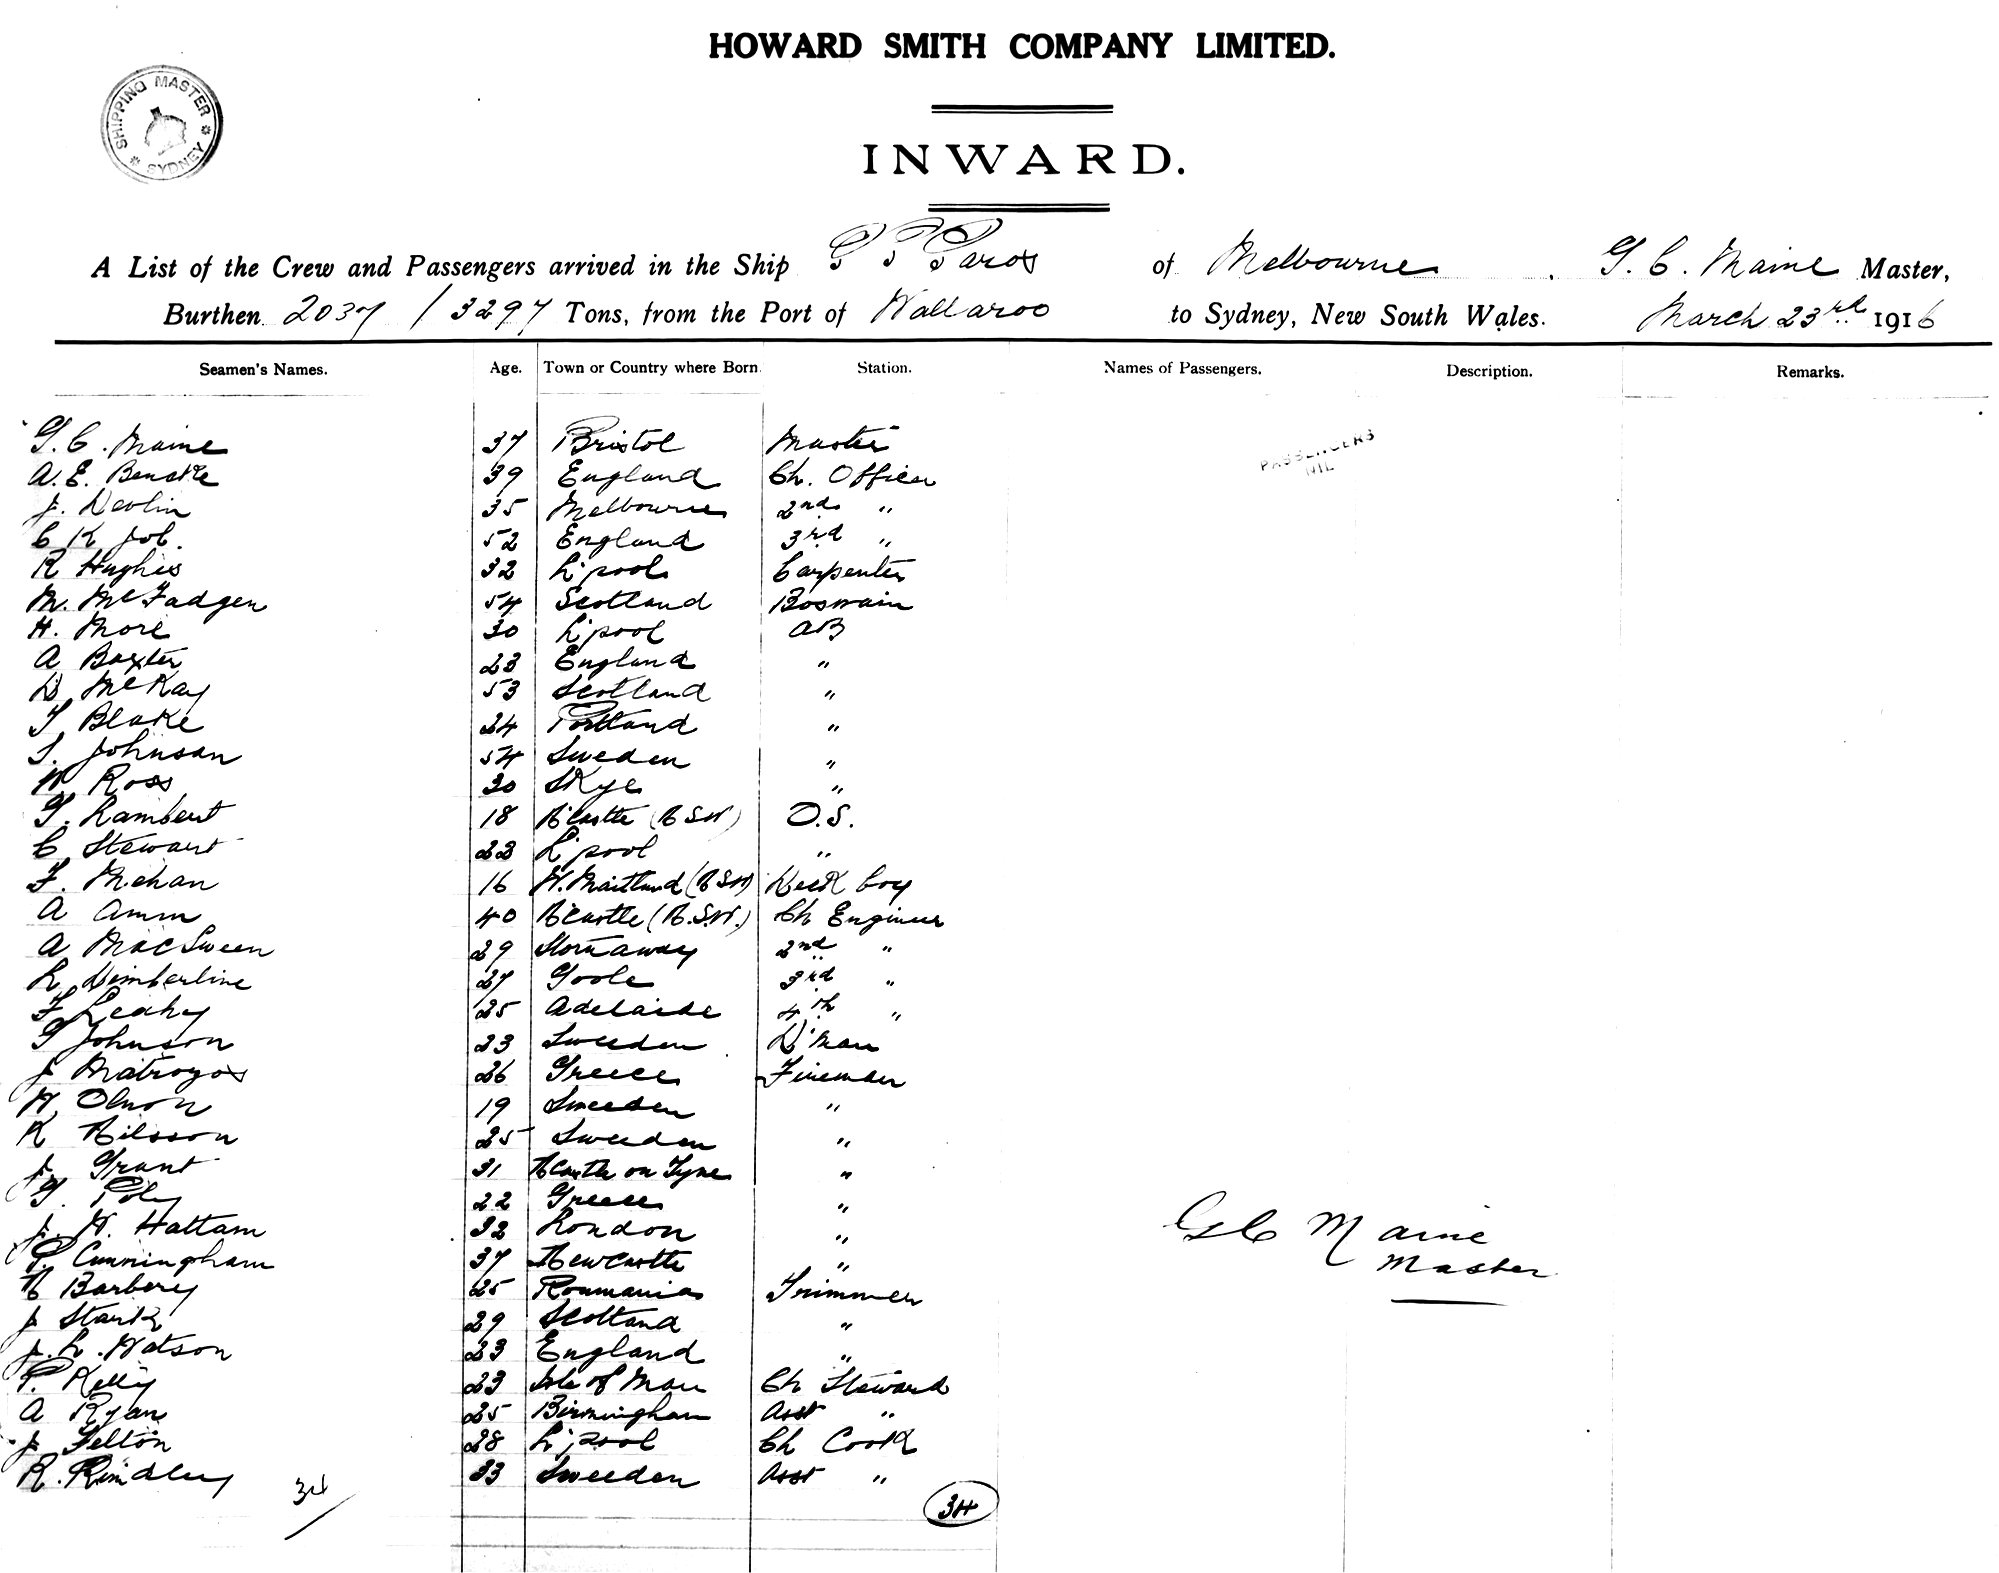 HOWARD SMITH COMPANY LIMITED.
SHIPPING MASTER * SYDNEY *
INWARD.
A List of the Crew and Passengers arrived in the Ship S S Paros of Melbourne, G. C. Maine Master,
Burthen 2037 / 3297 Tons, from the Port of Wallaroo to Sydney, New South Wales. March 23rd 1916
Seamen's Names. Age. Town or Country where Born Station. Names of Passengers. Description. Remarks.
PASSENGERS
NIL
G. C. Maine 37 Bristol Master
A. E. Benske 39 England Ch. Officer
J. Devlin 35 Melbourne 2nd "
C K Job. 52 England 3rd "
R Hughes 32 L'pool Carpenter
M. McFadgen 54 Scotland Boswain
H. More 30 L'pool AB
A Baxter 23 England "
D McKay 53 Scotland "
T Blake 24 Portland "
S. Johnson 54 Sweden "
W. Ross 30 Skye "
G. Lambert 18 N'Castle (NSW) O.S.
C Stewart 22 L'pool "
F. Mehan 16 W. Maitland (NSW) Deck boy
A Amm 40 N'Castle (N.S.W.) Ch Engineer
A MacSween 29 Stornaway 2nd "
L Kimberline 27 Goole 3rd "
F Leahy 25 Adelaide 4th "
G Johnson 23 Sweeden D'Man
J Matroyos 26 Greece Fireman
W Olsson 19 Sweeden "
K Nilsson 25 Sweeden "
J. Grant 31 NCastle on Tyne "
G. Poly 22 Greece "
J. W. Hattam 32 London "
P. Cunningham 37 Newcastle "
N Barbery 25 Roumania Trimmer
J Stark 29 Scotland "
J. L. Watson 23 England "
P. Kelly 23 Isle of Man Ch Steward
A Ryan 25 Birmingham Asst "
J Felton 28 L'pool Ch Cook
R. Rindley 33 Sweeden Asst "
34
34
G C Maine
Master